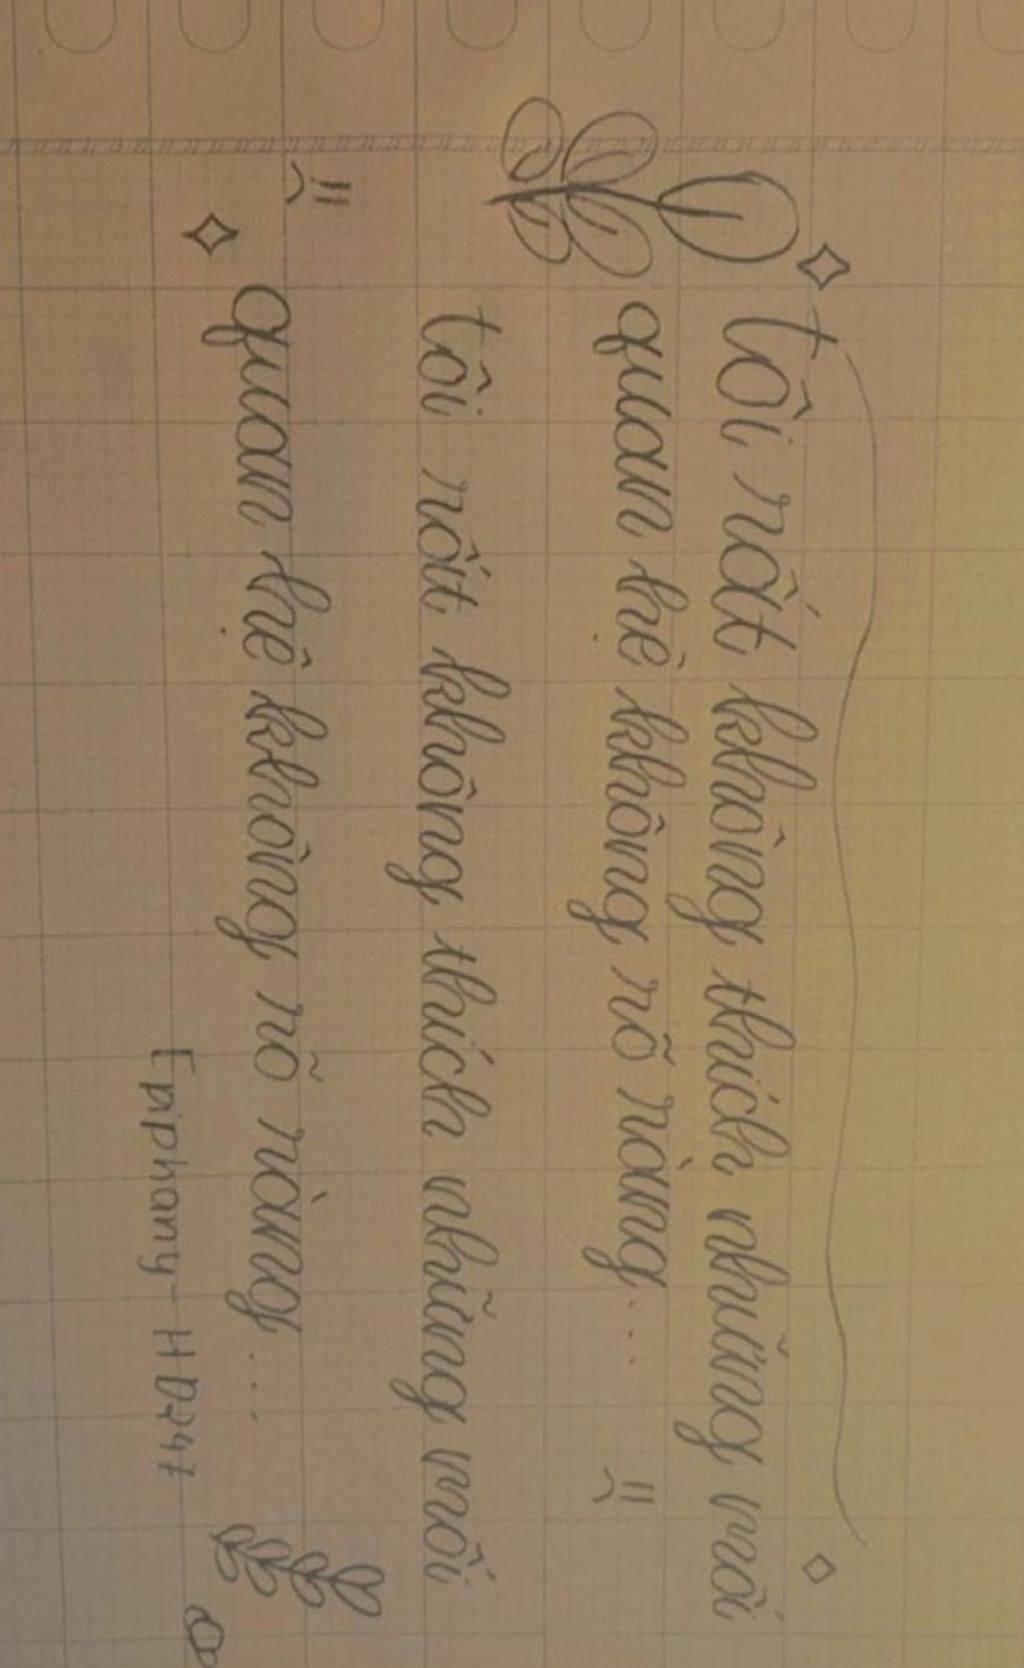 tôi rất không thích những mối
quan hệ không rõ ràng...
tôi rất không thích những mối
quan hệ không rõ ràng...
Epiphany-HD247